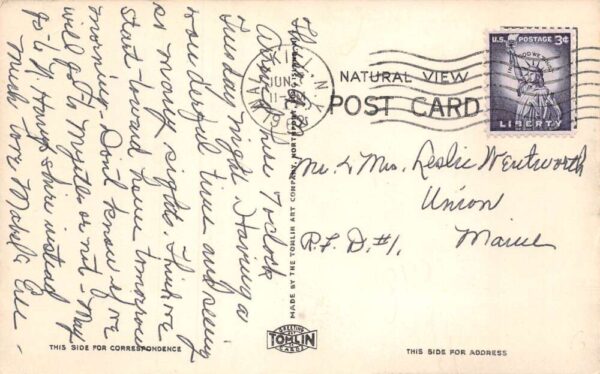 Arrived here 7 o'clock
Tuesday night. Having a
wonderful time and seeing
so many sights. Think we
start toward home tomorrow
morning - Don't know if we
will go to Myrtles or not - May
go to N. Hampshire instead
Much love Mabel & Ever -
THIS SIDE FOR CORRESPONDENCE
MADE BY THE TOMLIN ART COMPANY, NORTHPORT
GREETING
TOMLIN
CARDS
JUN
NATURAL VIEW
POST CARD
U.S. POSTAGE 3¢
IN GOD WE TRUST
LIBERTY
Mr. & Mrs. Leslie Wentworth
Union
R.F.D. #1, Maine
THIS SIDE FOR ADDRESS